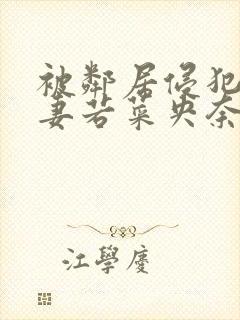 被鄰居侵犯
妻若菜央奈
江學慶